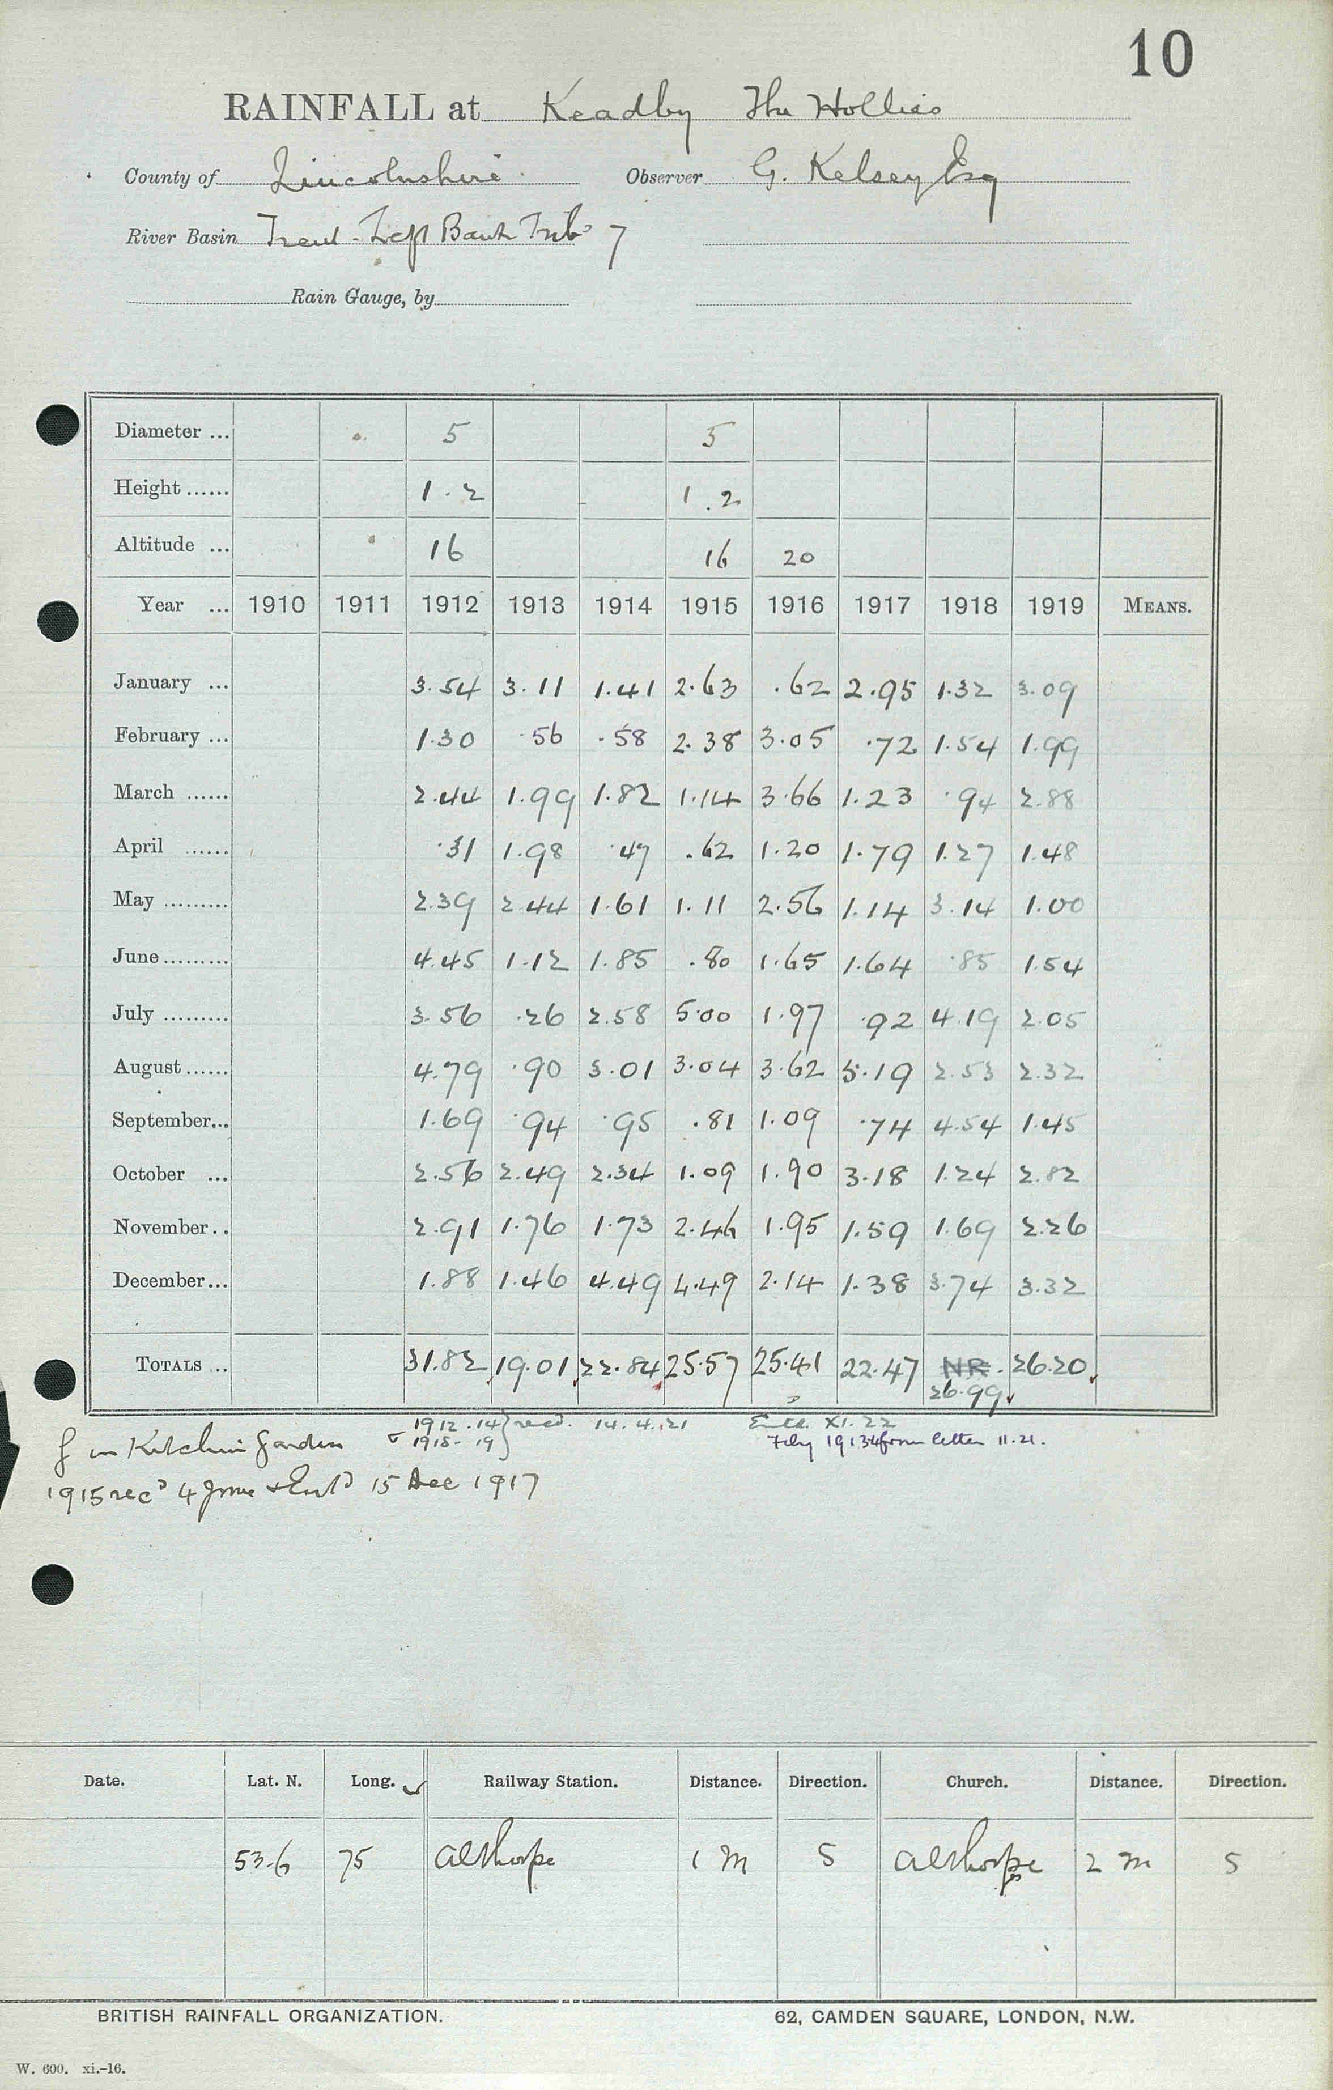 10
RAINFALL at Keadby The Hollies
County of Lincolnshire Observer G. Kelsey Esq
River Basin Trent - Left Bank Trib 7
Rain Gauge, by
Diameter ... 5 5
Height ...... 1.2 1.2
Altitude ... 16 16 20
Year ... 1910 1911 1912 1913 1914 1915 1916 1917 1918 1919 MEANS.
January ... 3.54 3.11 1.41 2.63 .62 2.95 1.32 3.09
February ... 1.30 .56 .58 2.38 3.05 .72 1.54 1.99
March ...... 2.44 1.99 1.82 1.14 3.66 1.23 .94 2.88
April ...... .31 1.98 .47 .62 1.20 1.79 1.27 1.48
May ......... 2.39 2.44 1.61 1.11 2.56 1.14 3.14 1.00
June ......... 4.45 1.12 1.85 .80 1.65 1.64 .85 1.54
July ......... 3.56 .26 2.58 5.00 1.97 .92 4.19 2.05
August ...... 4.79 .90 3.01 3.04 3.62 5.19 2.53 2.32
September... 1.69 .94 .95 .81 1.09 .74 4.54 1.45
October ... 2.56 2.49 2.34 1.09 1.90 3.18 1.24 2.82
November .. 2.91 1.76 1.73 2.46 1.95 1.59 1.69 2.26
December... 1.88 1.46 4.49 4.49 2.14 1.38 3.74 3.32
TOTALS ... 31.82 19.01 22.84 25.57 25.41 22.47 NR. 26.20
26.99
1912-14 } recd. 14.4.21 Entd. XI.22
1918-19 Feby 1913 & from letter 11.21.
g in Kitchen Garden
1915 recd 4 June & Entd 15 Dec 1917
Date. Lat. N. Long. Railway Station. Distance. Direction. Church. Distance. Direction.
53.6 75 Althorpe 1 m S Althorpe 2 m S
BRITISH RAINFALL ORGANIZATION. 62, CAMDEN SQUARE, LONDON, N.W.
W. 600. xi.-16.